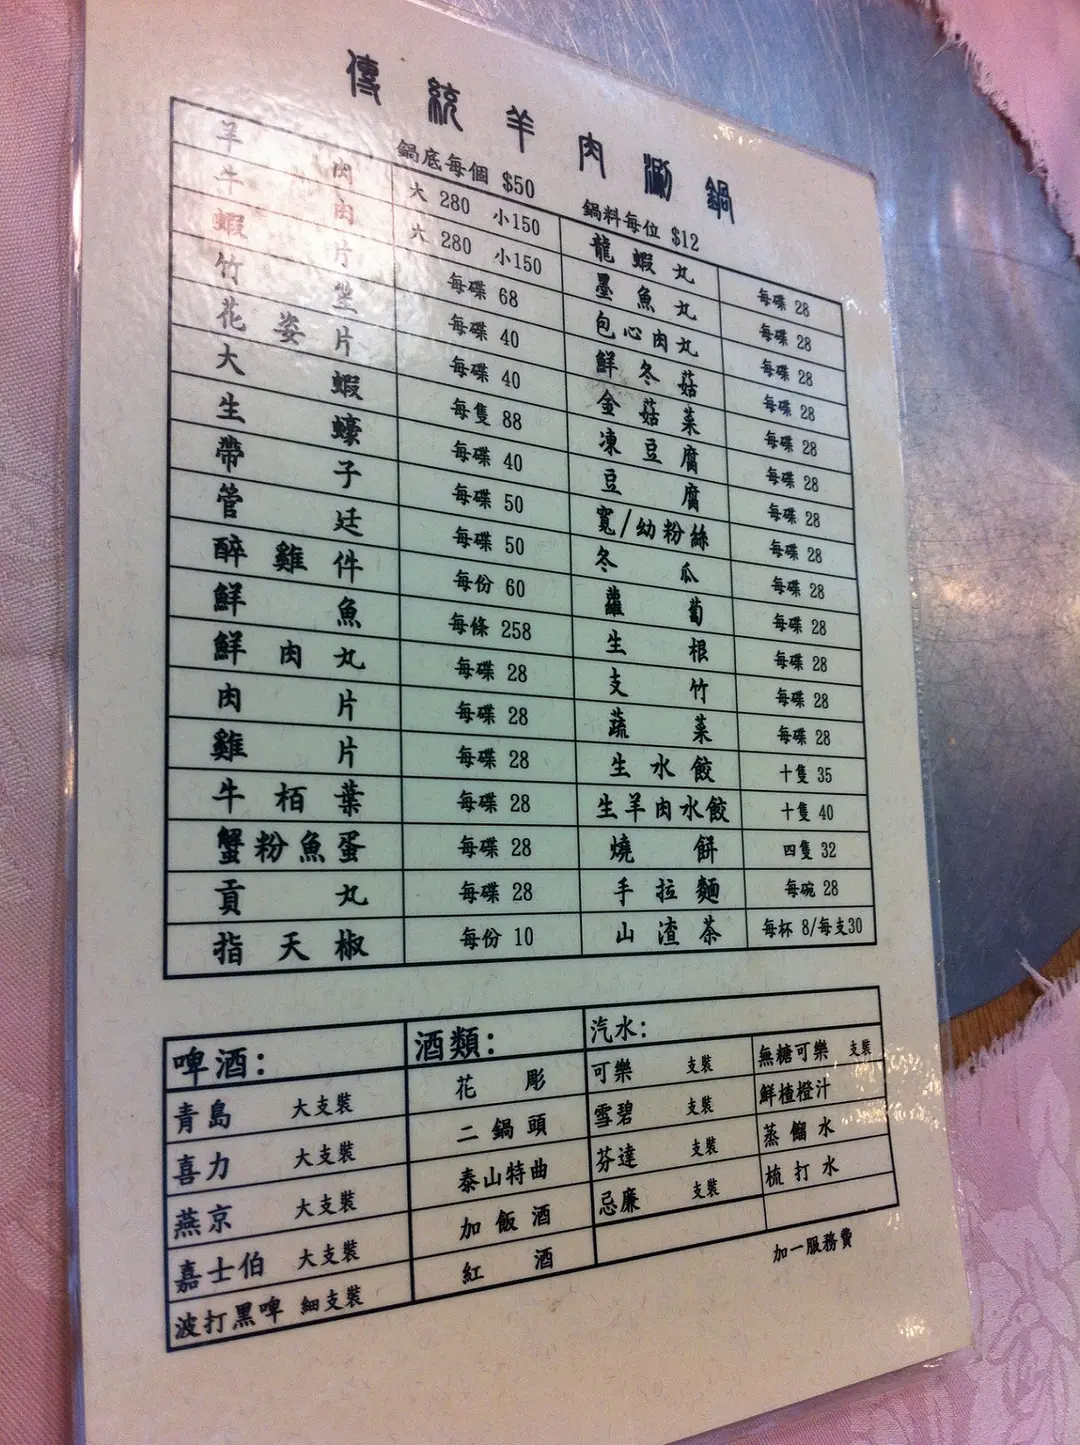 傳統羊肉涮鍋
鍋底每個 $50 鍋料每位 $12
羊肉 大 280 小150
牛肉 大 280 小150
蝦片 每碟 68
竹笙 每碟 40
花姿片 每碟 40
大蝦 每隻 88
生蠔 每碟 40
帶子 每碟 50
管廷 每碟 50
醉雞件 每份 60
鮮魚 每條 258
鮮肉丸 每碟 28
肉片 每碟 28
雞片 每碟 28
牛栢葉 每碟 28
蟹粉魚蛋 每碟 28
貢丸 每碟 28
指天椒 每份 10
龍蝦丸 每碟 28
墨魚丸 每碟 28
包心肉丸 每碟 28
鮮冬菇 每碟 28
金菇菜 每碟 28
凍豆腐 每碟 28
豆腐 每碟 28
寬/幼粉絲 每碟 28
冬瓜 每碟 28
蘿蔔 每碟 28
生根 每碟 28
支竹 每碟 28
蔬菜 每碟 28
生水餃 十隻 35
生羊肉水餃 十隻 40
燒餅 四隻 32
手拉麵 每碗 28
山渣茶 每杯 8/每支30
啤酒：
青島 大支裝
喜力 大支裝
燕京 大支裝
嘉士伯 大支裝
波打黑啤 細支裝
酒類：
花彫
二鍋頭
泰山特曲
加飯酒
紅酒
汽水：
可樂 支裝
雪碧 支裝
芬達 支裝
忌廉 支裝
無糖可樂 支裝
鮮楂橙汁
蒸餾水
梳打水
加一服務費